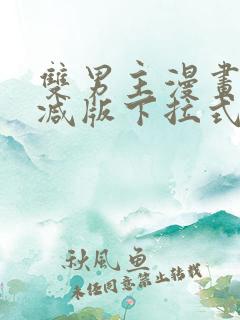 雙男主漫畫
減版下拉式
秋風魚
未经同意禁止转载